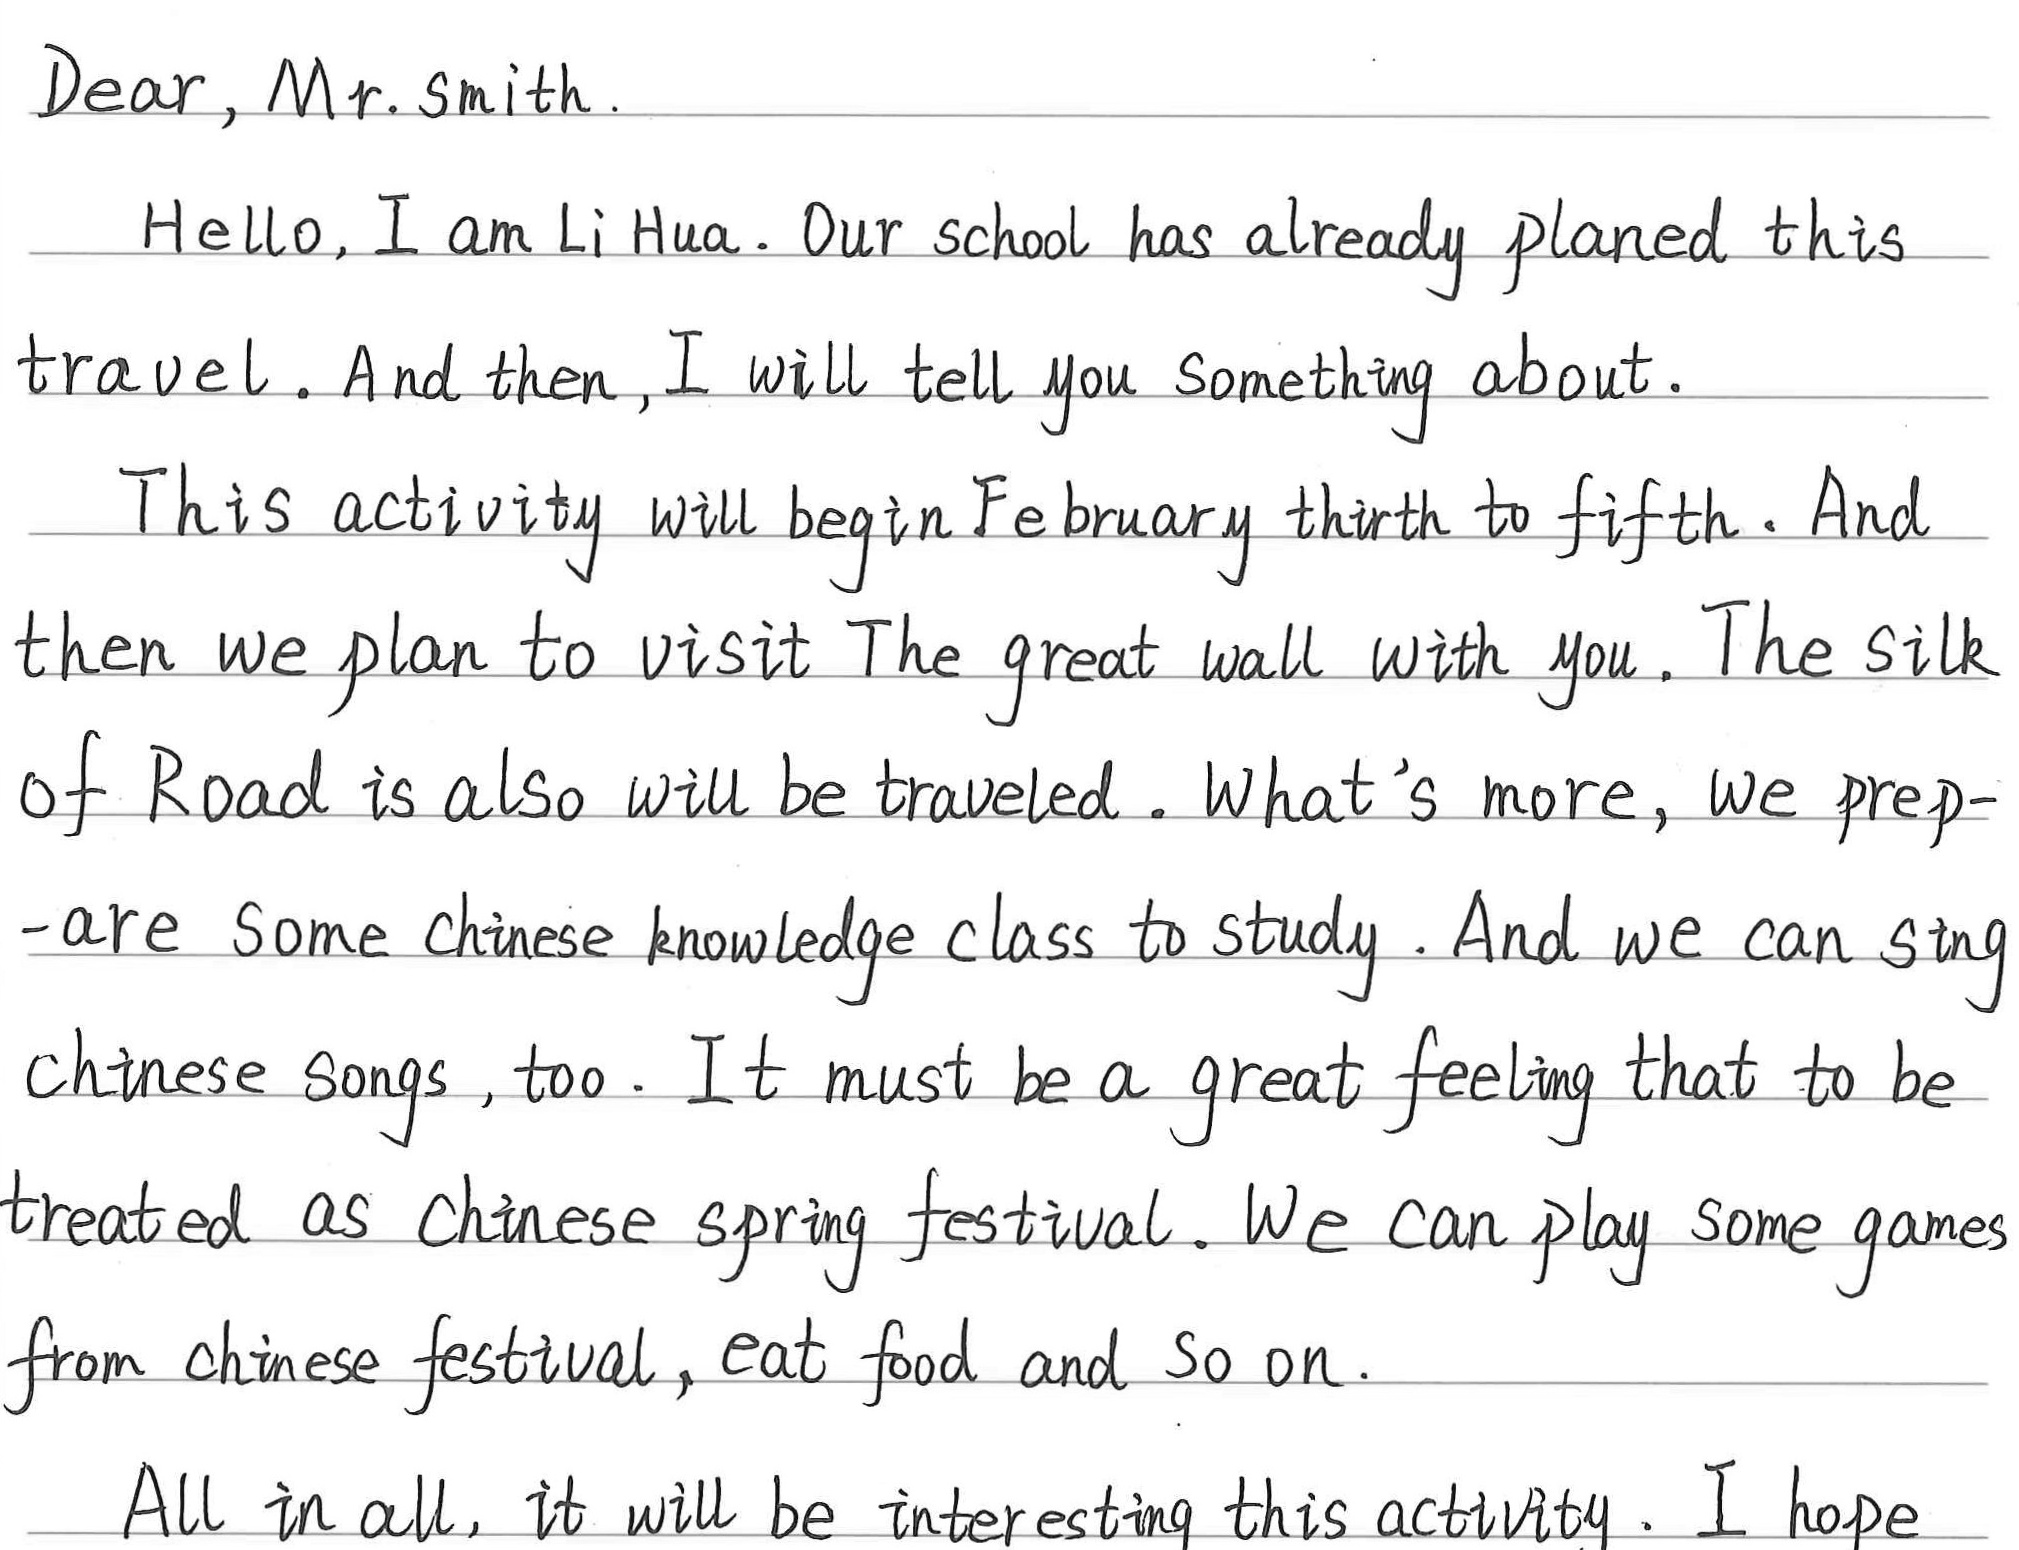 Dear, Mr. Smith.
Hello, I am Li Hua. Our school has already planed this
travel. And then, I will tell you something about.
This activity will begin February thirth to fifth. And
then we plan to visit The great wall with you. The silk
of Road is also will be traveled. What's more, we prep-
-are some chinese knowledge class to study. And we can sing
chinese songs, too. It must be a great feeling that to be
treated as chinese spring festival. We can play some games
from chinese festival, eat food and so on.
All in all, it will be interesting this activity. I hope